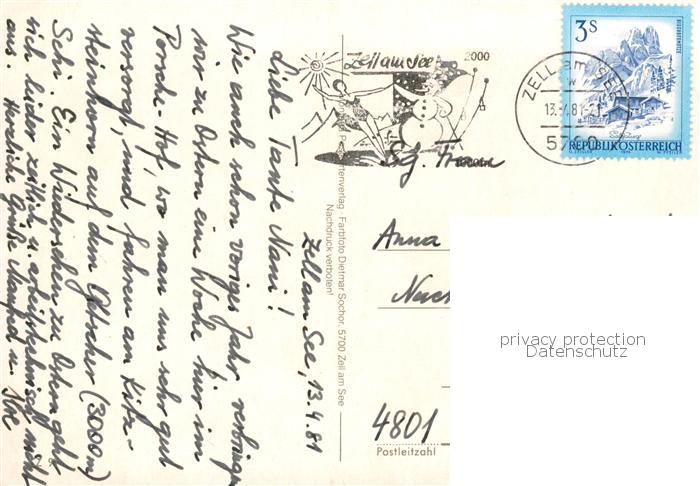 Zell am See, 13.4.81
Liebe Tante Nani!
Wie auch schon voriges Jahr verbringen
wir zu Ostern eine Woche hier im
Porsche-Hof, wo man uns sehr gut
versorgt, und fahren am Kitz-
steinhorn auf dem Gletscher (3000m)
Schi. Ein Wiedersehen zu Ostern geht
sich leider zeitlich u. arbeitstechnisch nicht
aus. Herzliche Grüße
Farbfoto Dietmar Sochor, 5700 Zell am See
Nachdruck verboten!
Zell am See
2000
ZELL am SEE
13.-4.81
5700
3 S
BISCHOFSMÜTZE
REPUBLIK ÖSTERREICH
Sg. Frau
Anna
4801
Postleitzahl
privacy protection
Datenschutz